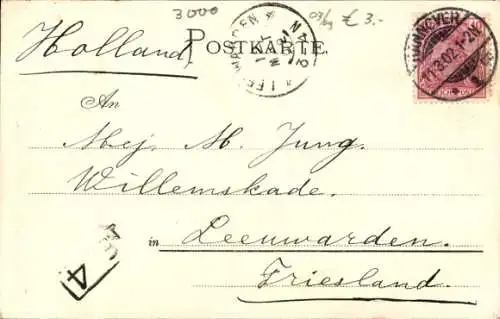 3000
03/09 € 3.-
Holland
POSTKARTE
LEEUWARDEN
HANNOVER
11.3.02.1-2N
An
Mej. M. Jung.
Willemskade.
in Leeuwarden.
Friesland.
4